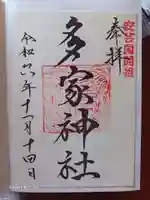 安芸国開祖
奉拝
多家神社
令和六年十一月十四日